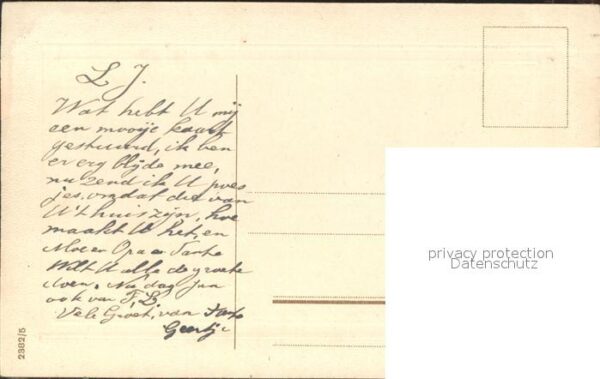 L J.
Wat hebt U mij
een mooije kaart
gestuurd, ik ben
er erg blijde mee,
nu zend ik U poes
jes, omdat die van
U 't huis zijn, hoe
maakt U het, en
Moe en Opa en Tante
Wilt U alle de groete
doen. Nu dag Jan
ook van T, B,
Vele Groet, van Tante
Geertje
2382/5
privacy protection
Datenschutz